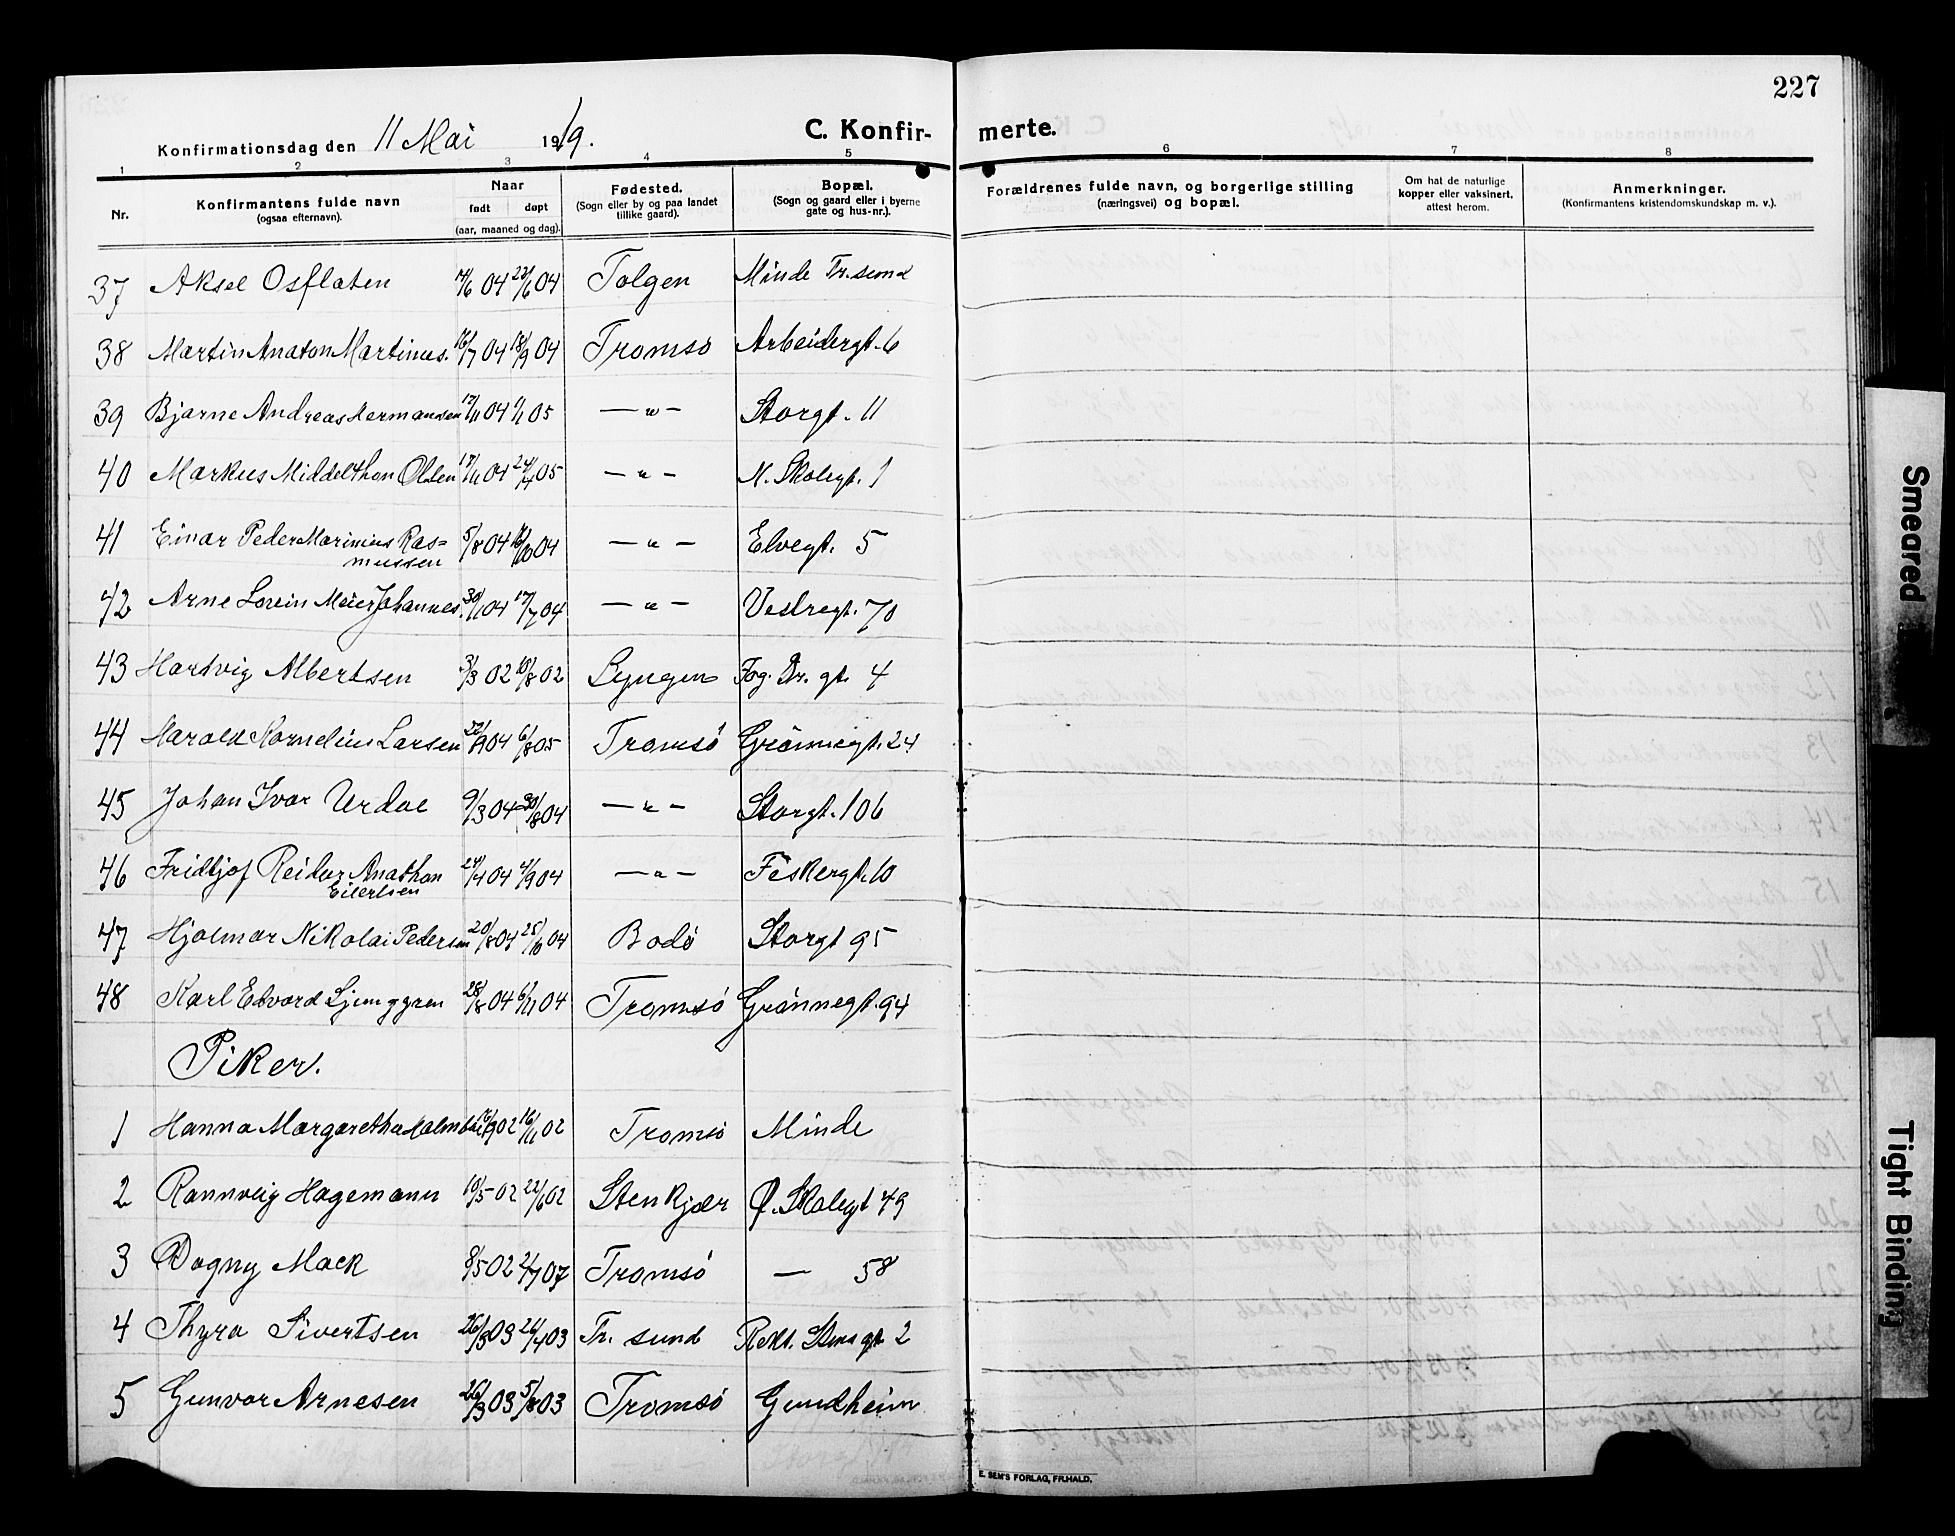 227
Konfirmationsdag den 11 Mai 1919.
C. Konfir-merte.
1 2 3 4 5 6 7 8
Nr.
Konfirmantens fulde navn
(ogsaa efternavn).
Naar
født døpt
(aar, maaned og dag).
Fødested.
(Sogn eller by og paa landet
tillike gaard).
Bopæl.
(Sogn og gaard eller i byerne
gate og hus-nr.).
Forældrenes fulde navn, og borgerlige stilling
(næringsvei) og bopæl.
Om hat de naturlige
kopper eller vaksinert,
attest herom.
Anmerkninger.
(Konfirmantens kristendomskundskap m. v.).
37 Aksel Osflaten 14/6 04 23/6 04 Tolgen Minde Tr.sund
38 Martin Anaton Martinus. 16/7 04 18/9 04 Tromsø Arbeidergt. 6
39 Bjarne Andreas Hermansen 17/11 04 1/1 05 — " — Storgt. 11
40 Markus Middelthon Olsen 17/11 04 24/4 05 — " — N. Skolegt. 1
41 Einar Peder Marinius Ras=
mussen 5/8 04 16/10 04 — " — Elvegt. 5
42 Arne Lorein Meier Johannes. 30/1 04 17/7 04 — " — Vestregt. 70
43 Hartvig Albertsen 3/3 02 10/8 02 Lyngen Fog. Dr. gt. 4
44 Harald Kornelius Larsen 22/9 04 6/8 05 Tromsö Grönnegt. 24
45 Johan Ivar Urdal 9/3 04 30/8 04 — " — Storgt. 106
46 Fridtjof Reidar Anathon
Eilertsen 24/4 04 4/9 04 — " — Fiskergt. 10
47 Hjalmar Nikolai Pedersen 20/8 04 25/10 04 Bodö Storgt 95
48 Karl Edvard Ljunggren 28/8 04 6/11 04 Tromsö Grönnegt. 94
Piker.
1 Hanna Margaretha 16/9 02 16/11 02 Tromsö Minde
2 Rannveig Hagemann 10/5 02 22/6 02 Stenkjær Ø. Skolegt 49
3 Dagny Mack 8/5 02 2/7 07 Tromsö — 58
4 Thyra Sivertsen 26/3 03 26/4 03 Tr. sund Rekt. Stens gt 2
5 Gunvor Arnesen 26/3 03 5/8 03 Tromsö Gundheim
E. SEM'S FORLAG, FR.HALD.
Smeared
Tight Binding